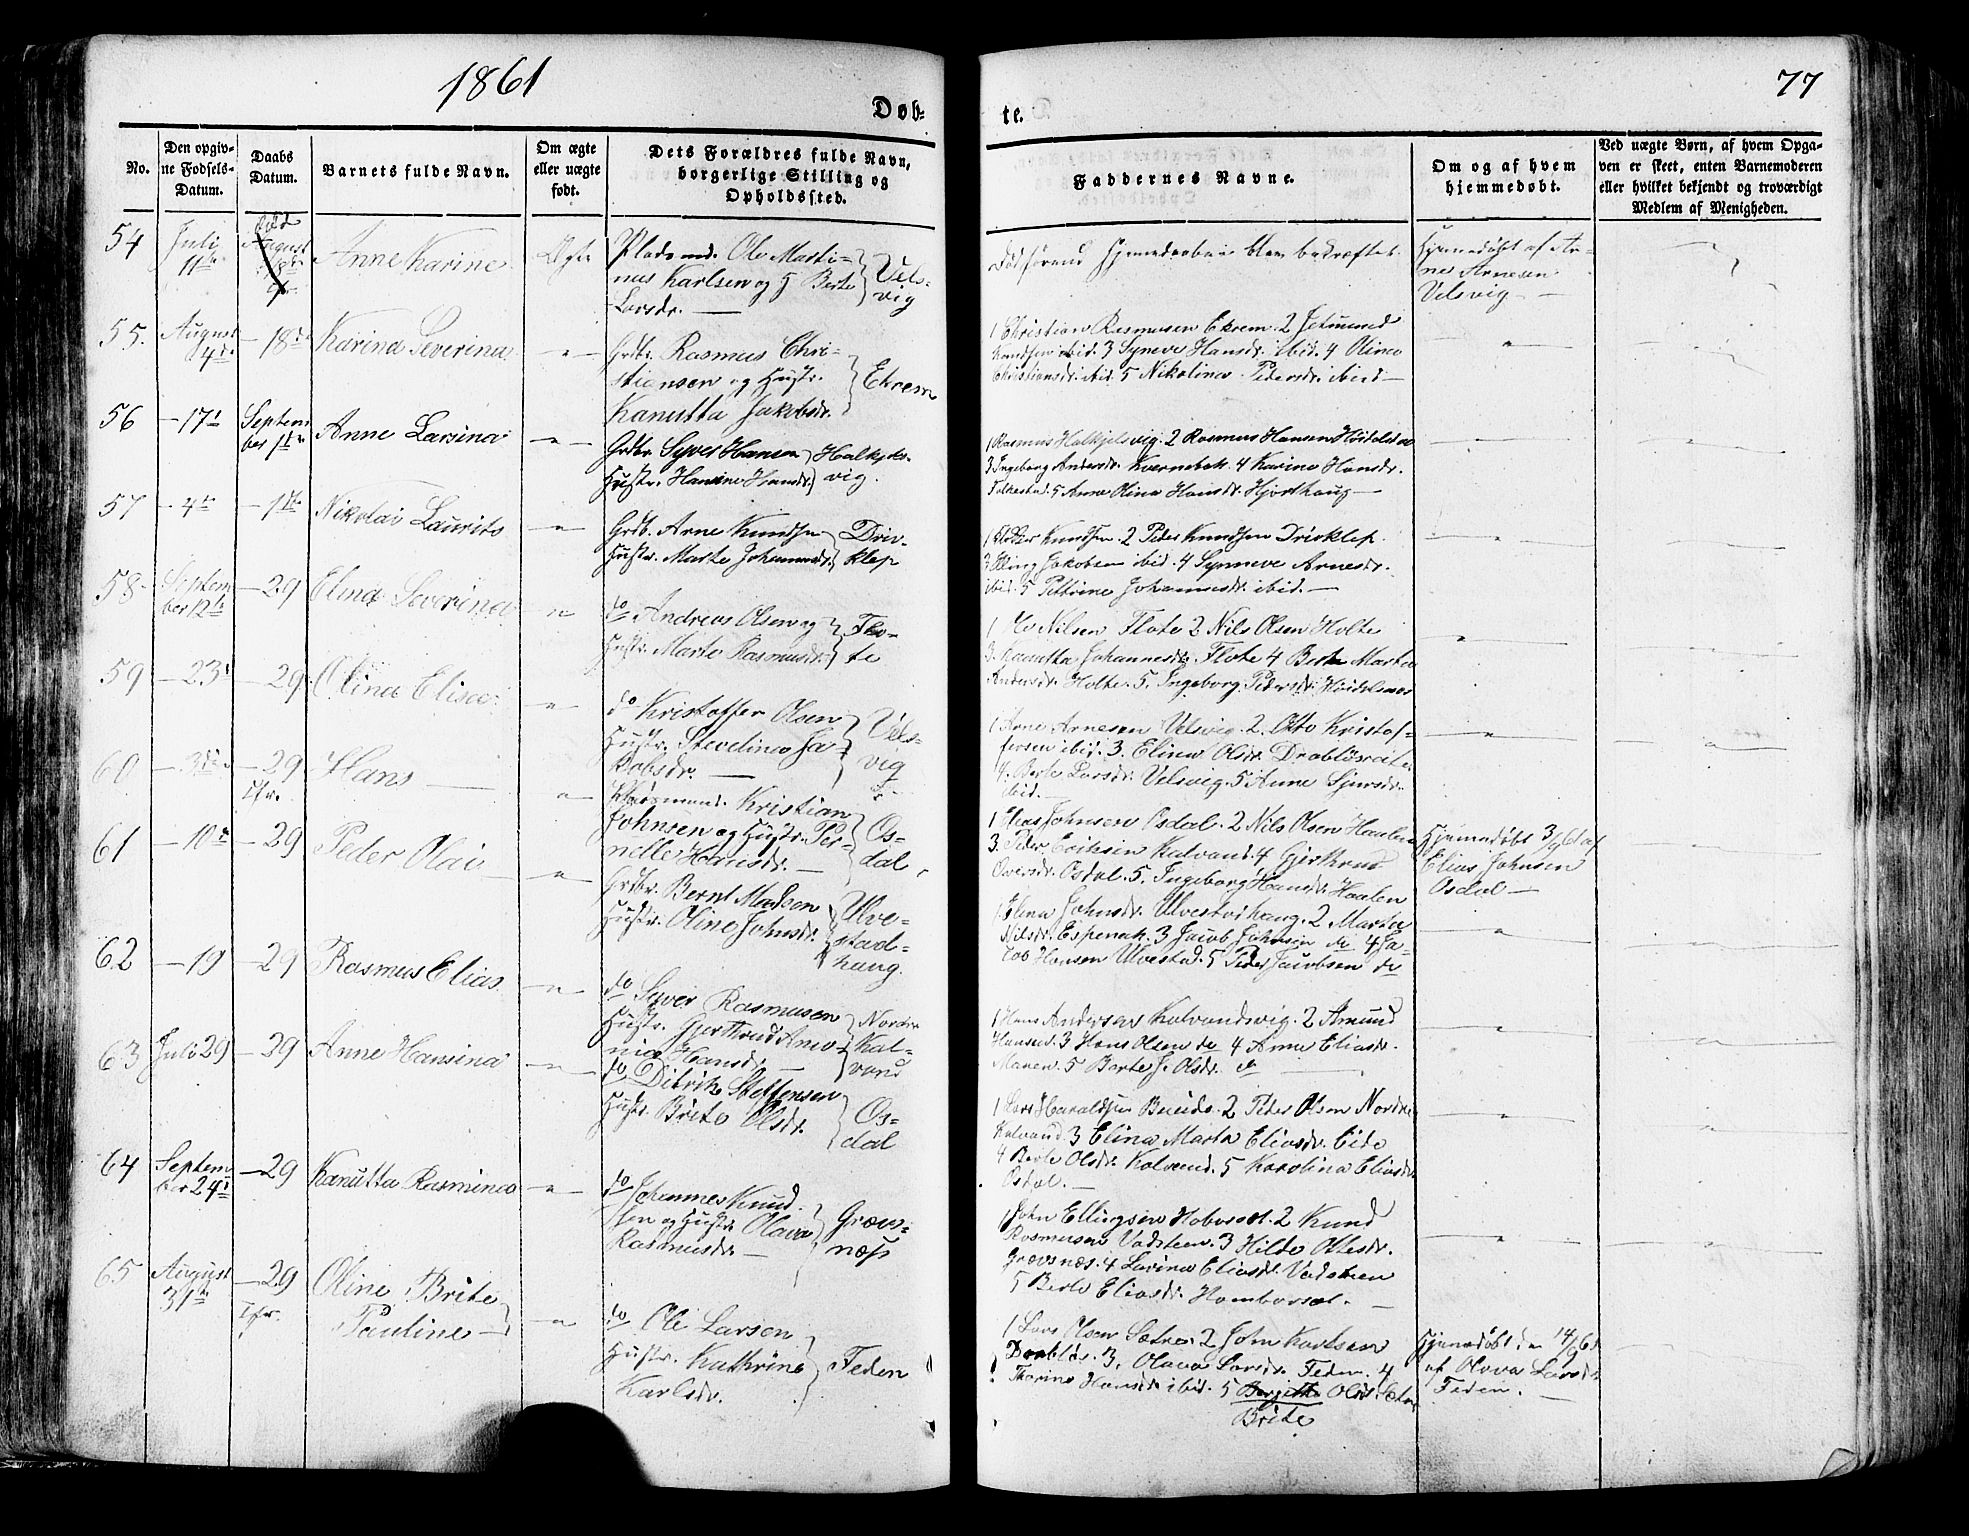 1861
77
Døb-
te.
No.
Den opgiv-
ne Fødsels-
Datum.
Daabs
Datum.
Barnets fulde Navn.
Om ægte
eller uægte
født.
Dets Forældres fulde Navn,
borgerlige Stilling og
Opholdssted.
Faddernes Navne.
Om og af hvem
hjemmedøbt.
Ved uægte Børn, af hvem Opga-
ven er skeet, enten Barnemoderen
eller hvilket bekjendt og troværdigt
Medlem af Menigheden.
54
Juli
11te
August
18de
Anne Karine
Ægte
Pladsmd. Ole Marti-
nus Karlsen og Berte
Larsdr. —
Vels-
vig
Hjemmedaaben blev bekræftet
Hjemmedøbt af Ar-
ne Arnesen
Velsvig —
55.
August
4de
— 18de
Karina Severina
Grdbr. Rasmus Chri-
stiansen og Hustr.
Kanutta Jakobsdr.
Ekrem
1 Christian Rasmusen Ekrem 2 Jetmund
Knudsen ibid. 3 Syneve Hansdr. ibid. 4 Olina
Christiansdr. ibid 5 Nikolina Pedersdr. ibid —
56
— 17de
Septem
ber 1ste
Anne Larsina
Grdbr. Syver Hansen
Hustr. Hansine Hansdr.
vig.
1 Rasmus Halkjelsvig. 2 Rasmus Hansen
3 Ingeborg Andersdr. Kvernebak. 4 Karina Hansdr.
Folkestad. 5 Anne Olina Hansdr. Hjorthaug —
57
— 4de
— 1ste
Nikolai Laurits
Grdb. Arne Knudsen
Hustr. Marte Johannesdr.
Driv-
klep
Knudsen 2 Peder Knudsen Drivklep.
3 Elling Jakobsen ibid. 4 Synneve Arnesdr.
ibid. 5 Pettrine Johannesdr. ibid. —
58
Septem
ber 12te
— 29
Elina Severina
do Andreas Olsen og
Hustr. Marte Rasmusdr.
Flo-
te
1 Nilsen Flote 2 Nils Olsen Holte
3. Kanutta Johannesdr. Flote 4 Berte Marta
Andersdr. Holte. 5. Ingeborg Pedersdr.
59
— 23de
— 29
Olina Elisa
do Kristoffer Olsen
Hustr. Stevelina Ja-
kobsdr. —
Vels-
vig
1 Arne Arnesen Velsvig. 2. Otto Kristof-
fersen ibid. 3. Elina Olsdr.
4. Berte Larsdr. Velsvig. 5 Anne Sjursdr.
ibid. —
60
— 3die
— 29
Hans —
Pladsmand. Kristian
Johnsen og Hustr. Per-
nelle Hansdr. —
Os-
dal
1 Elias Johnsen Osdal. 2 Nils Olsen Haalen
3. Peder Eriksen Kalvand. 4 Gjertrud
Osdal. 5. Ingeborg Hansdr. Haalen
Hjemmedøbt 3/9 61 af
Elias Johnsen
Osdal —
61
— 10de
— 29
Peder Olai —
Grdbr. Bernt Madsen
Hustr. Oline Johnsdr.
Ulve-
stad-
haug.
1 Elina Johnsdr. Ulvestadhaug. 2 Marta
Nilsdr. Espenak. 3 Jacob Johnsen do 4 Ja-
cob Hansen Ulvestad. 5 Peder Jacobsen do
62
— 19
— 29
Rasmus Elias
do Syver Rasmusen
Hustr. Gjertrud Anto-
nia Hansdr. —
Nordre
Kal-
vand
1 Hans Andersen Kalvandsvig. 2 Amund
Hansen. 3 Hans Olsen do 4 Anna Eliasdr.
Maren. 5 Berte J. Olsdr. do —
63
Juli 29
— 29
Anne Hansina
do Didrik Steffensen
Hustr. Brite Olsdr.
Os-
dal
1 Lars Haraldsen 2 Peder Olsen Nordre
Kalvand 3 Elina Marta Eliasdr. Eide
4 Berte Olsdr. Kalvand. 5 Karolina Eliasdr.
Osdal. —
64
Septem
ber 24de
— 29
Kanutta Rasmina
do Johannes Knud-
sen og Hustr. Olava
Rasmusdr. —
Græv-
næss
1 John Ellingsen 2 Knud
Rasmusen Vadsteen. 3 Hilde Ottesdr.
Grævsnæs. 4 Lavina Eliasdr. Vadsteen
5 Berte Eliasdr.
65
August
31te
— 29
Oline Brite
Pauline —
do Ole Larsen
Hustr. Kathrine
Karlsdr.
Feden
1 Lars Olsen Sætre. 2 John Karlsen
3. Olava Larsdr. Feden. 4
Thorine Hansdr. ibid. 5 Olsdr. Sætre
Brite
Hjemmedøbt den 14/9 61
af Olava Larsdr.
Feden. —